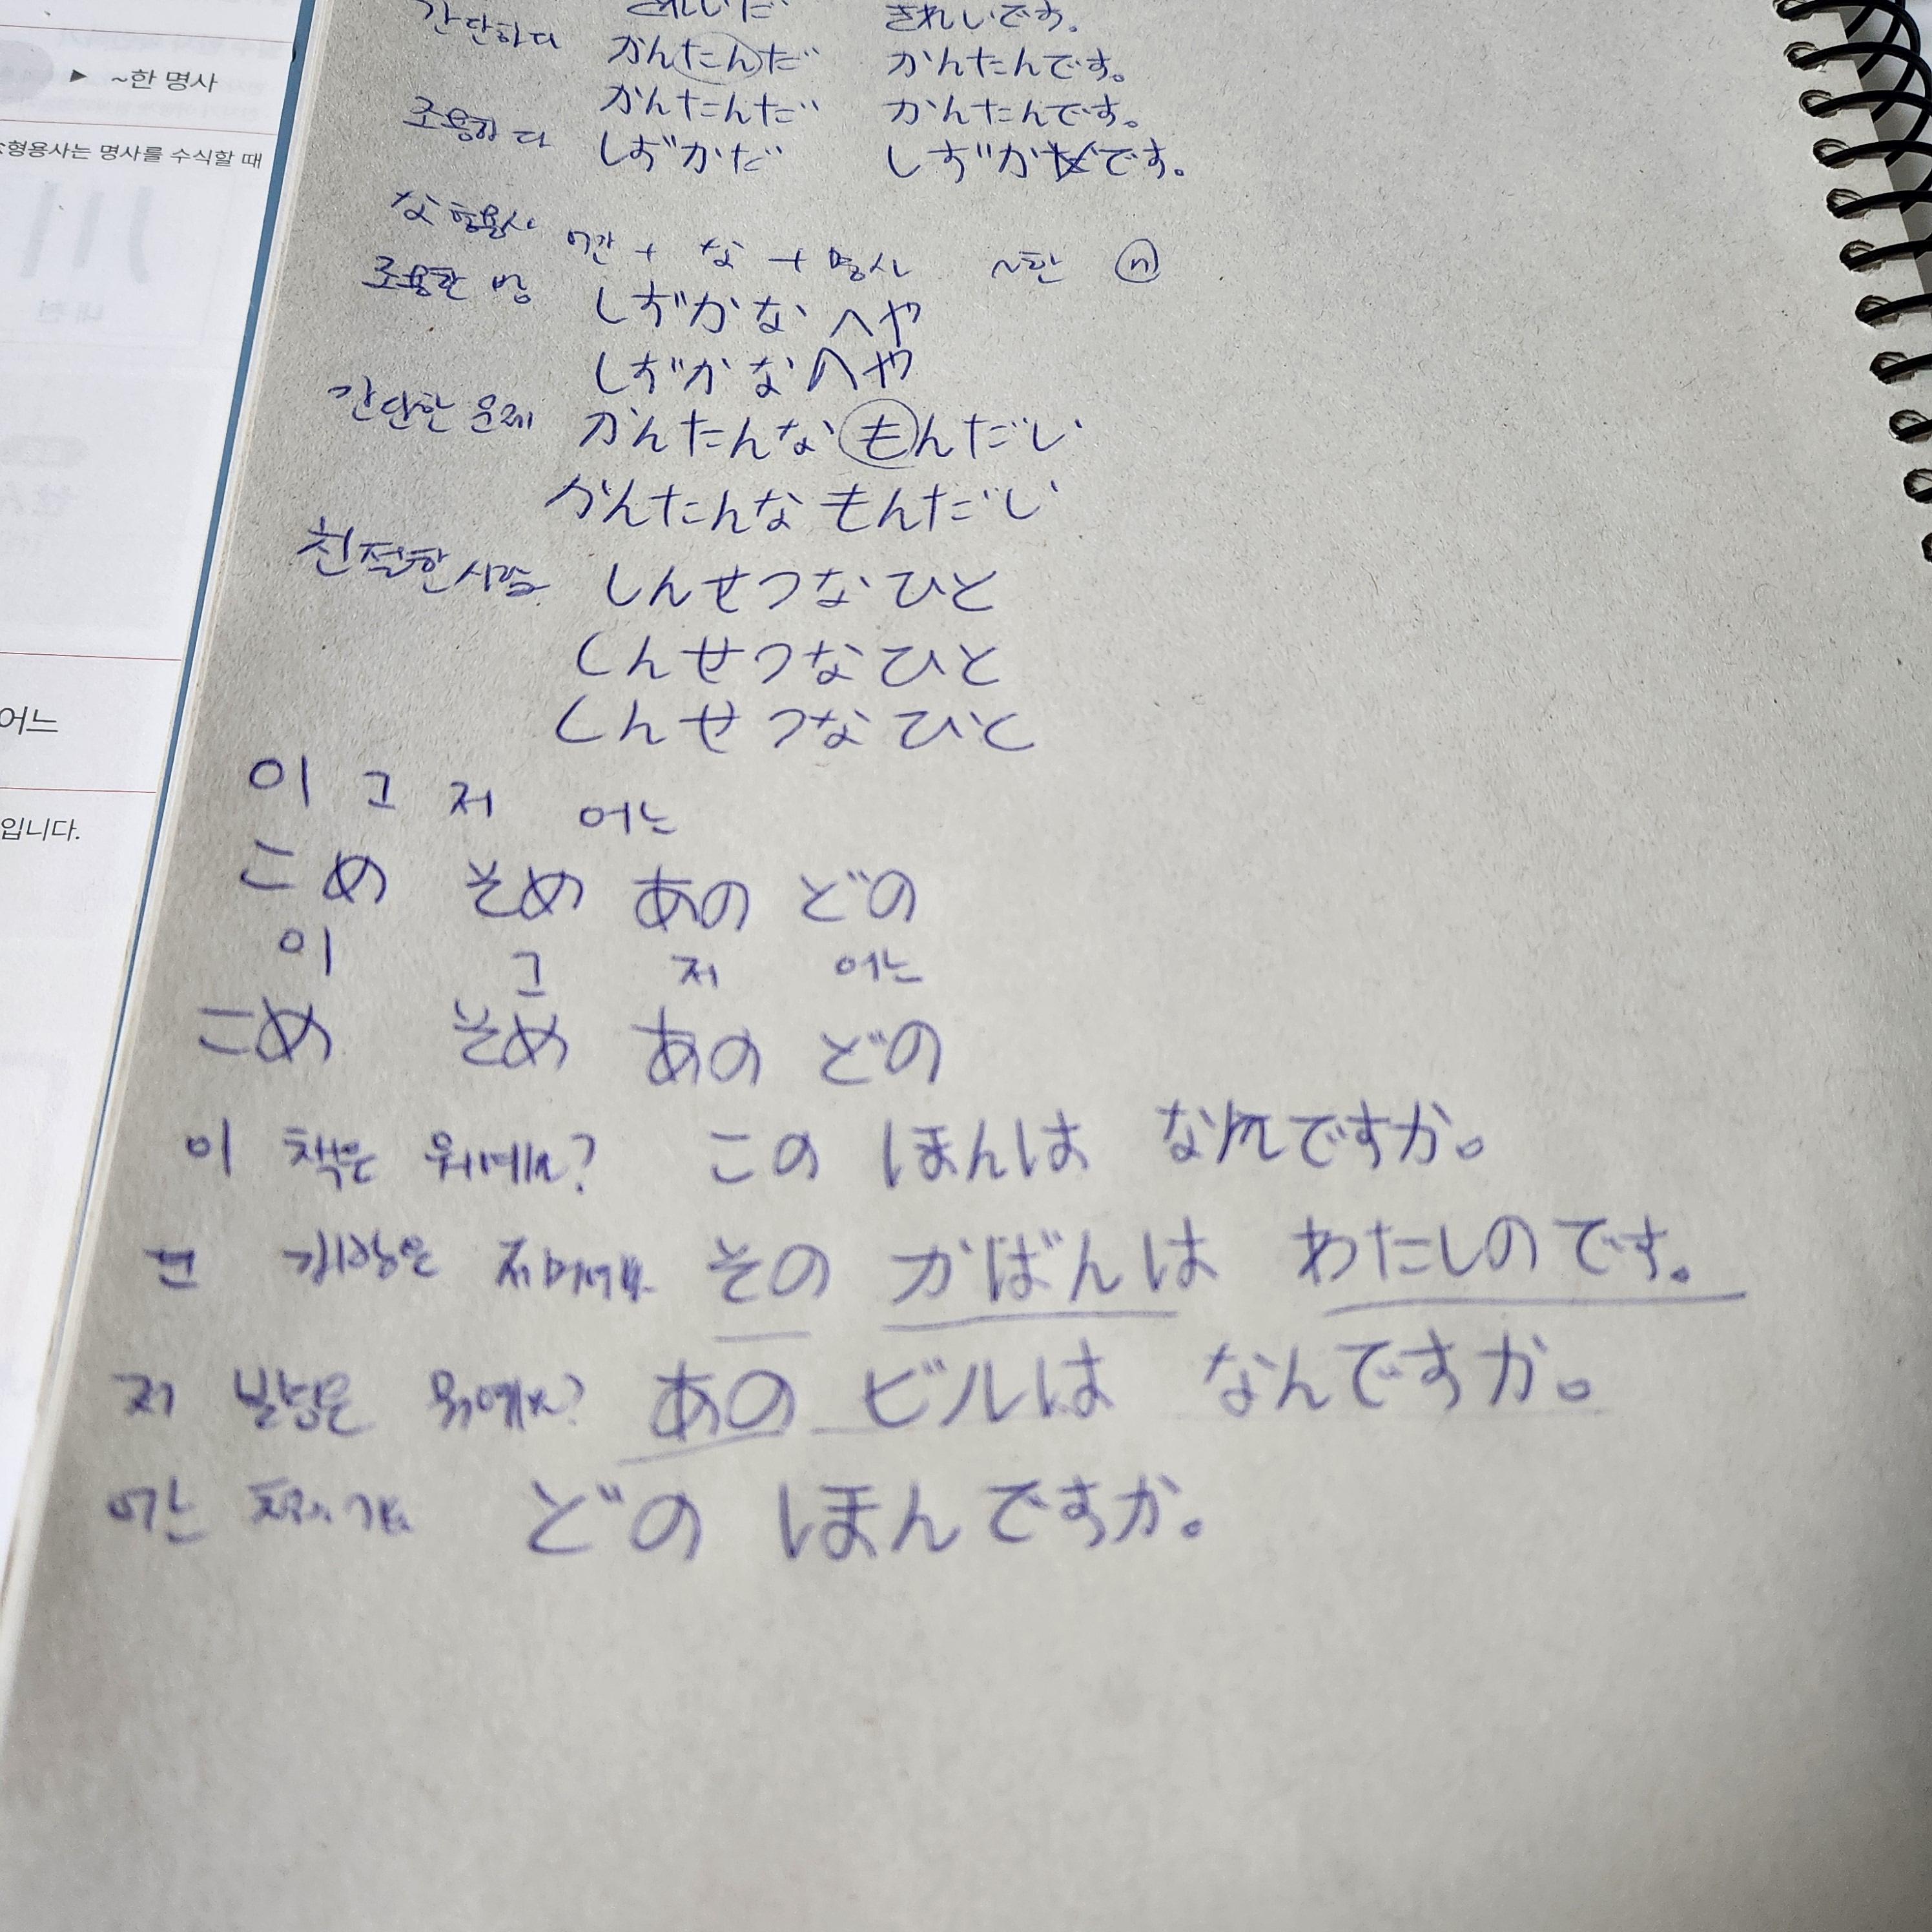 ▶ ~한 명사
형용사는 명사를 수식할 때
어느
입니다.
きれいだ きれいです。
간단하다 かんたんだ かんたんです。
かんたんだ かんたんです。
조용하다 しずかだ しずかです。
な형용사 어간 + な + 명사 ~한 ⓝ
조용한 방 しずかな へや
しずかな へや
간단한 문제 かんたんな もんだい
かんたんな もんだい
친절한 사람 しんせつな ひと
しんせつな ひと
しんせつな ひと
이 그 저 어느
こめ そめ あの どの
이 그 저 어느
こめ そめ あの どの
이 책은 뭐예요? この ほんは なんですか。
그 가방은 その かばんは わたしのです。
저 빌딩은 뭐예요? あの ビルは なんですか。
어느 どの ほんですか。